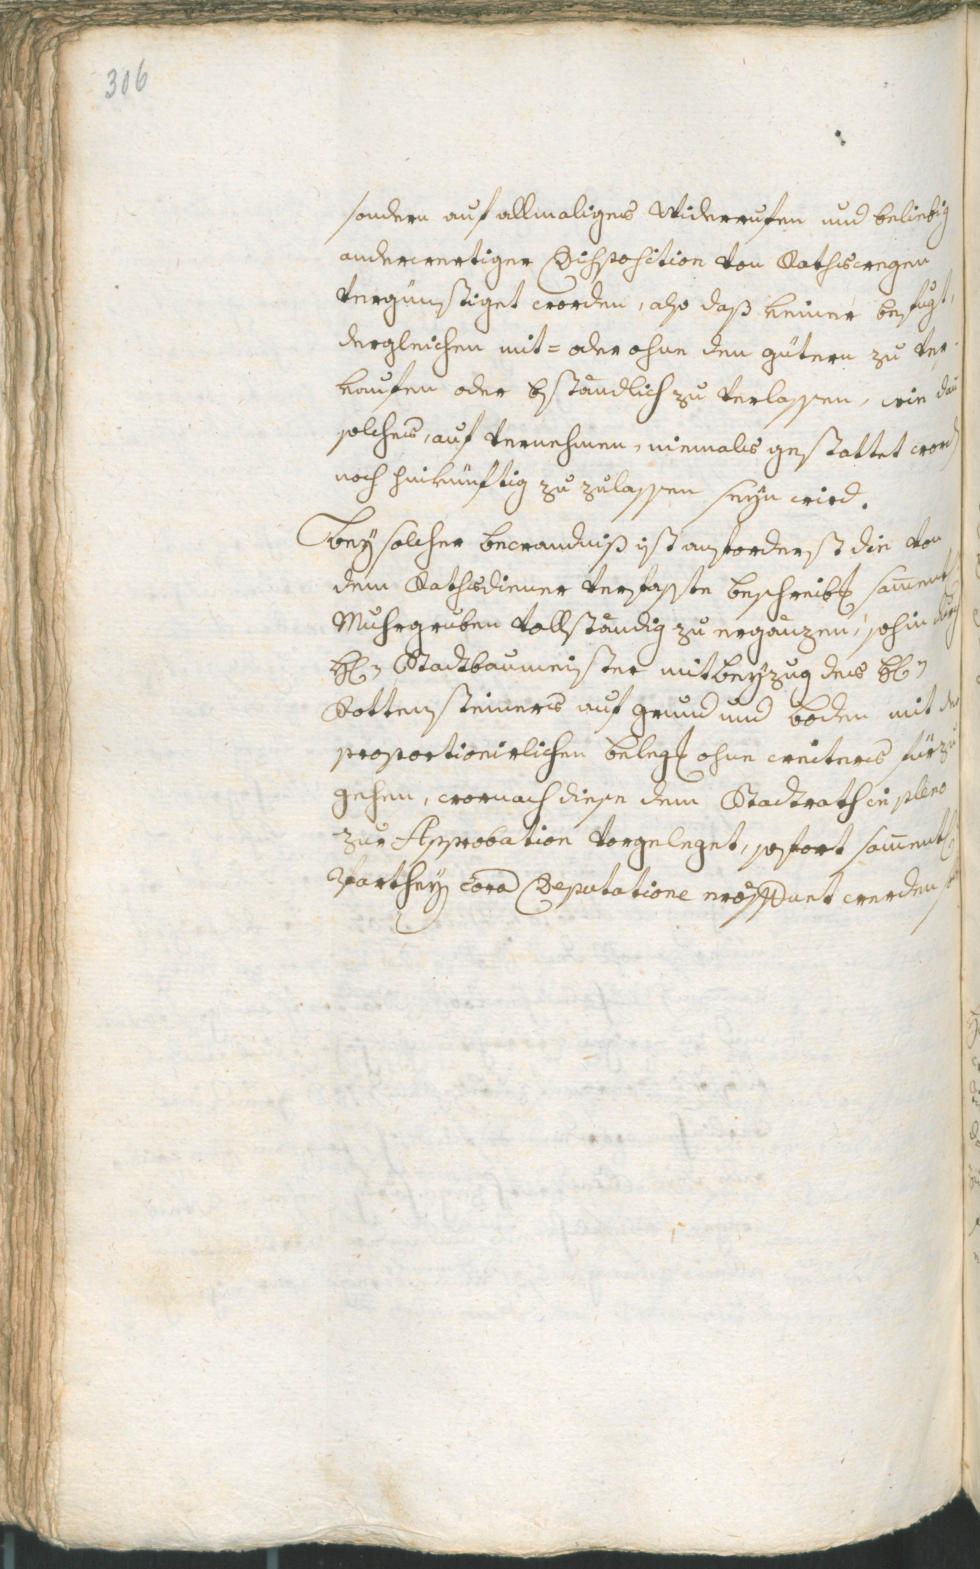 306
sondern auf allmaliges Widerruffen und beliebig
anderwertiger Dihsposition von Rathswegen
vergünstiget worden, also daß keiner befugt,
dergleichen mit= oder ohne den gütern zu ver-
kaufen oder bständlich zu verlassen, wie dan
solches, auf vernehmen, niemals gestattet word
noch hinkünftig zu zulassen seyn wird.
Bey solcher bewandniß ist anforderst die von
dem Rathsdiener verfasste beschreibg sam̅ent
Muhrgruben vollständig zu ergänzen, sohin durch
H: Stadtbaumeister mit beyzug des H:
Rottensteiners auf grund und boden mit der
proportionirlichen belegg ohne weiters fürzu
gehen, wornach diese dem Stadtrath in pleno
zur Approbation vorgeleget, sofort sam̅entl
Parthey corã Deputatione eröffnet werden